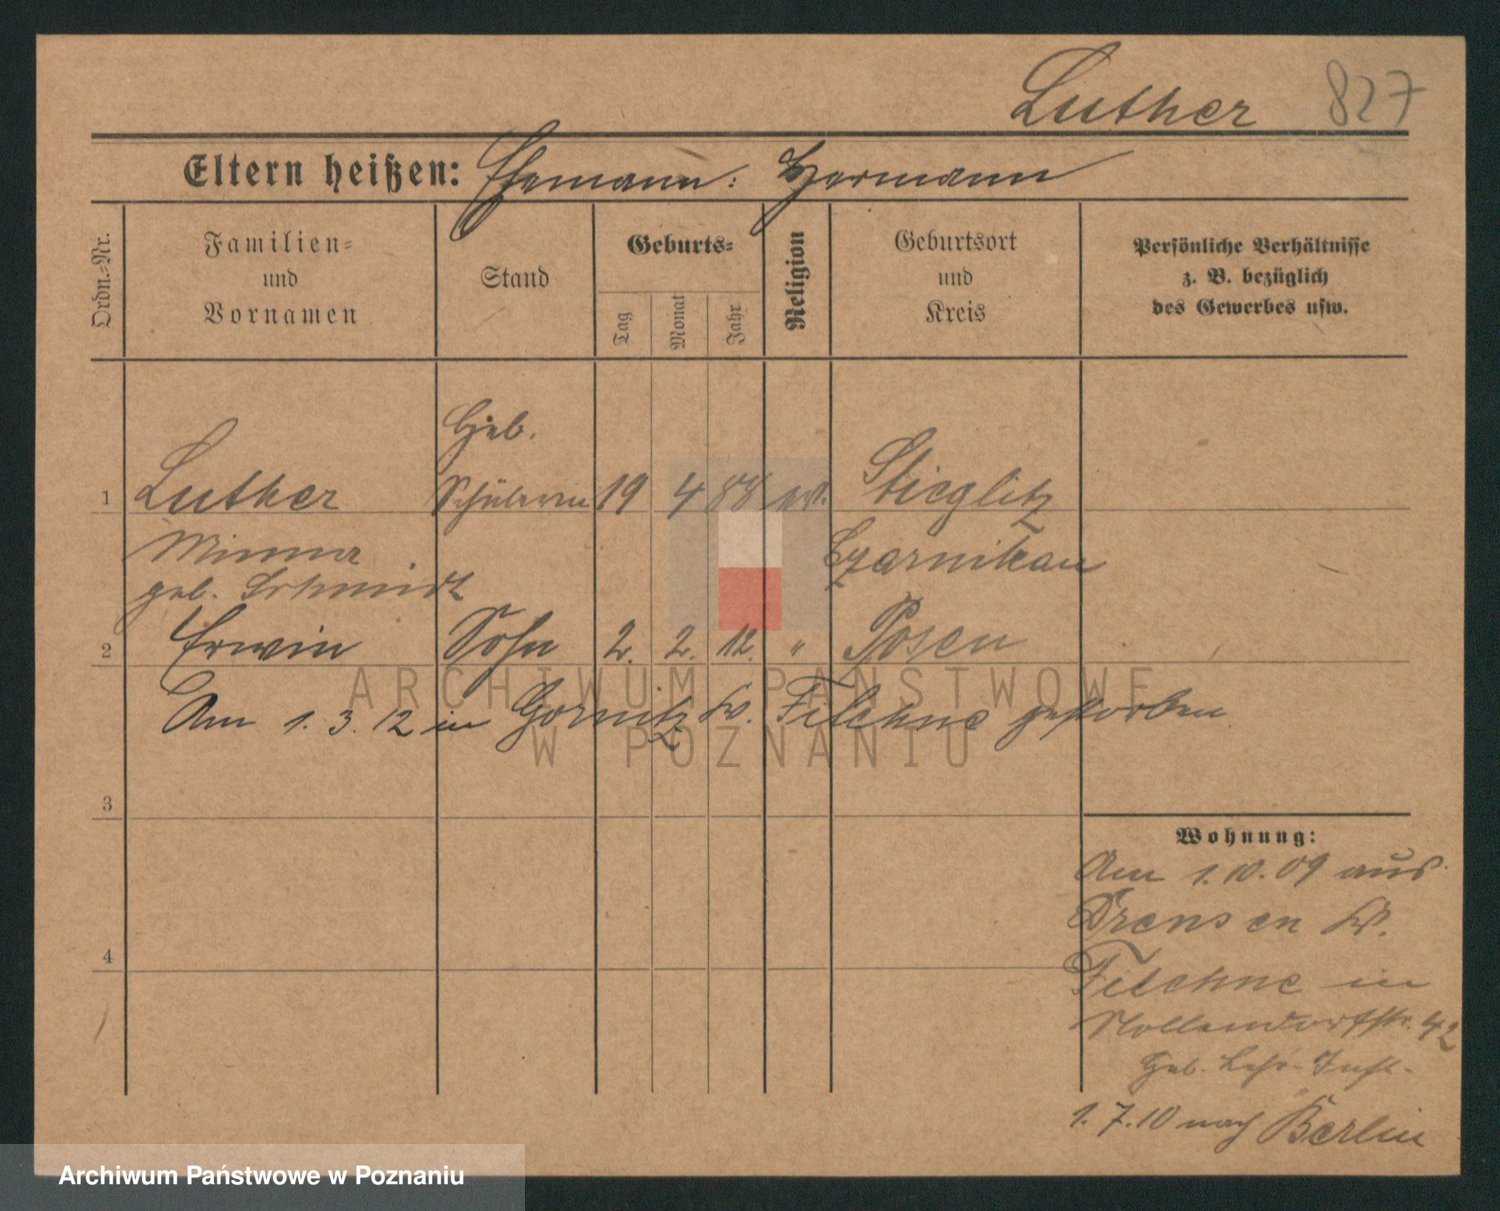 Luther 827
Eltern heißen: Ehemann: Hermann
Ordn.-Nr.
Familien-
und
Vornamen
Stand
Geburts-
Tag
Monat
Jahr
Religion
Geburtsort
und
Kreis
Persönliche Verhältnisse
z. B. bezüglich
des Gewerbes usw.
Heb.
1 Luther Schülerin 19 4 88 ev. Stieglitz
Minna Czarnikau
geb. Schmidt
2 Erwin Sohn 2. 2. 12. " Posen
Am 1. 3. 12 in Gornitz Kr. Filehne gestorben.
3
Wohnung:
Am 1. 10. 09 aus
Drensen Kr.
4
Filehne in
42
Heb. Lehr-Inst.
1. 7. 10 nach Berlin
ARCHIWUM PAŃSTWOWE
W POZNANIU
Archiwum Państwowe w Poznaniu